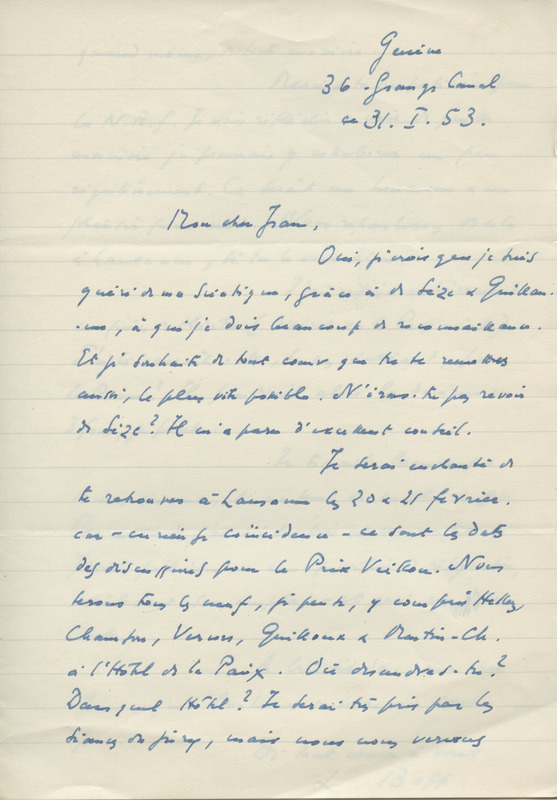 Genève
36 Grange Canal
ce 31. I. 53.
Mon cher Jean,
Oui, je crois que je suis
guéri de ma sciatique, grâce à de Sèze & Guillau-
-me, à qui je dois beaucoup de reconnaissance.
Et je souhaite de tout coeur que tu te remettes
aussi, le plus vite possible. N'iras-tu pas revoir
de Sèze? Il m'a paru d'excellent conseil.
Je serai enchanté de
te retrouver à Lausanne les 20 & 21 février.
car - curieuse coïncidence - ce sont les dates
des discussions pour le Prix Veillon. Nous
serons tous les neuf, je pense, y compris Hellens,
Chamson, Vercors, Guilloux & Martin-Ch.
à l'Hôtel de la Paix. Où descendras-tu?
Dans quel Hôtel? Je serai très pris par les
séances du jury, mais nous nous verrons